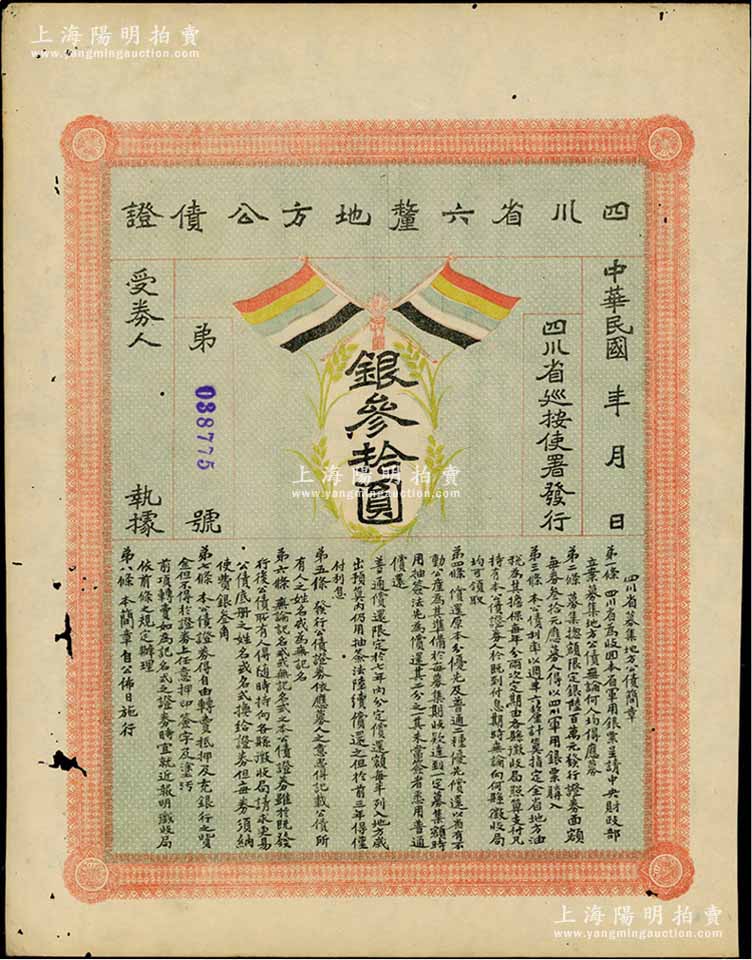 上海陽明拍賣
www.yangmingauction.com
四川省六釐地方公債證
中華民國 年 月 日
四川省巡按使署發行
銀參拾圓
弟 038775 號
受券人 執據
四川省募集地方公債簡章
第一條 四川省為收回本省軍用銀票呈請中央財政部
立案募集地方公債無論何人均得應募
第二條 募集總額限定銀陸百萬元發行證券面額
每券叁拾元應募人得以四川軍用銀票購入
第三條 本公債利率以週年六釐計算指定全省地方油
稅為其擔保每年分兩次定期由各縣徵收局照算支付凡
持有本公債證券人於既到付息期時無論向何縣徵收局
均可領取
第四條 償還原本分優先及普通二種優先償還以省有不
動公產為其準備於每募集期收款達到一定募集額時
用抽簽法先為償還其二分之一其未當簽者悉用普通
償還
普通償還限定於七年內分定償還額每年列入地方歲
出預算內仍用抽簽法陸續償還之但於前三年得僅
付利息
第五條 發行公債證券依應募人之意思得記載公債所
有人之姓名或為無記名
第六條 無論記名式或無記名式之本公債證券雖於既發
行後公債所有人得隨時持向各縣徵收局請求更易
公債底冊之姓名或名式換給證券但每券須納
使費銀叁角
第七條 本公債證券得自由轉賣抵押及充銀行之貿
金但不得於證券上任意押印簽字及塗污
前項轉賣如為記名式之證券時宜就近報明徵收局
依前條之規定辦理
第八條 本簡章自公佈日施行
上海陽明拍賣
www.yangmingauction.com
上海陽明拍賣
www.yangmingauction.com